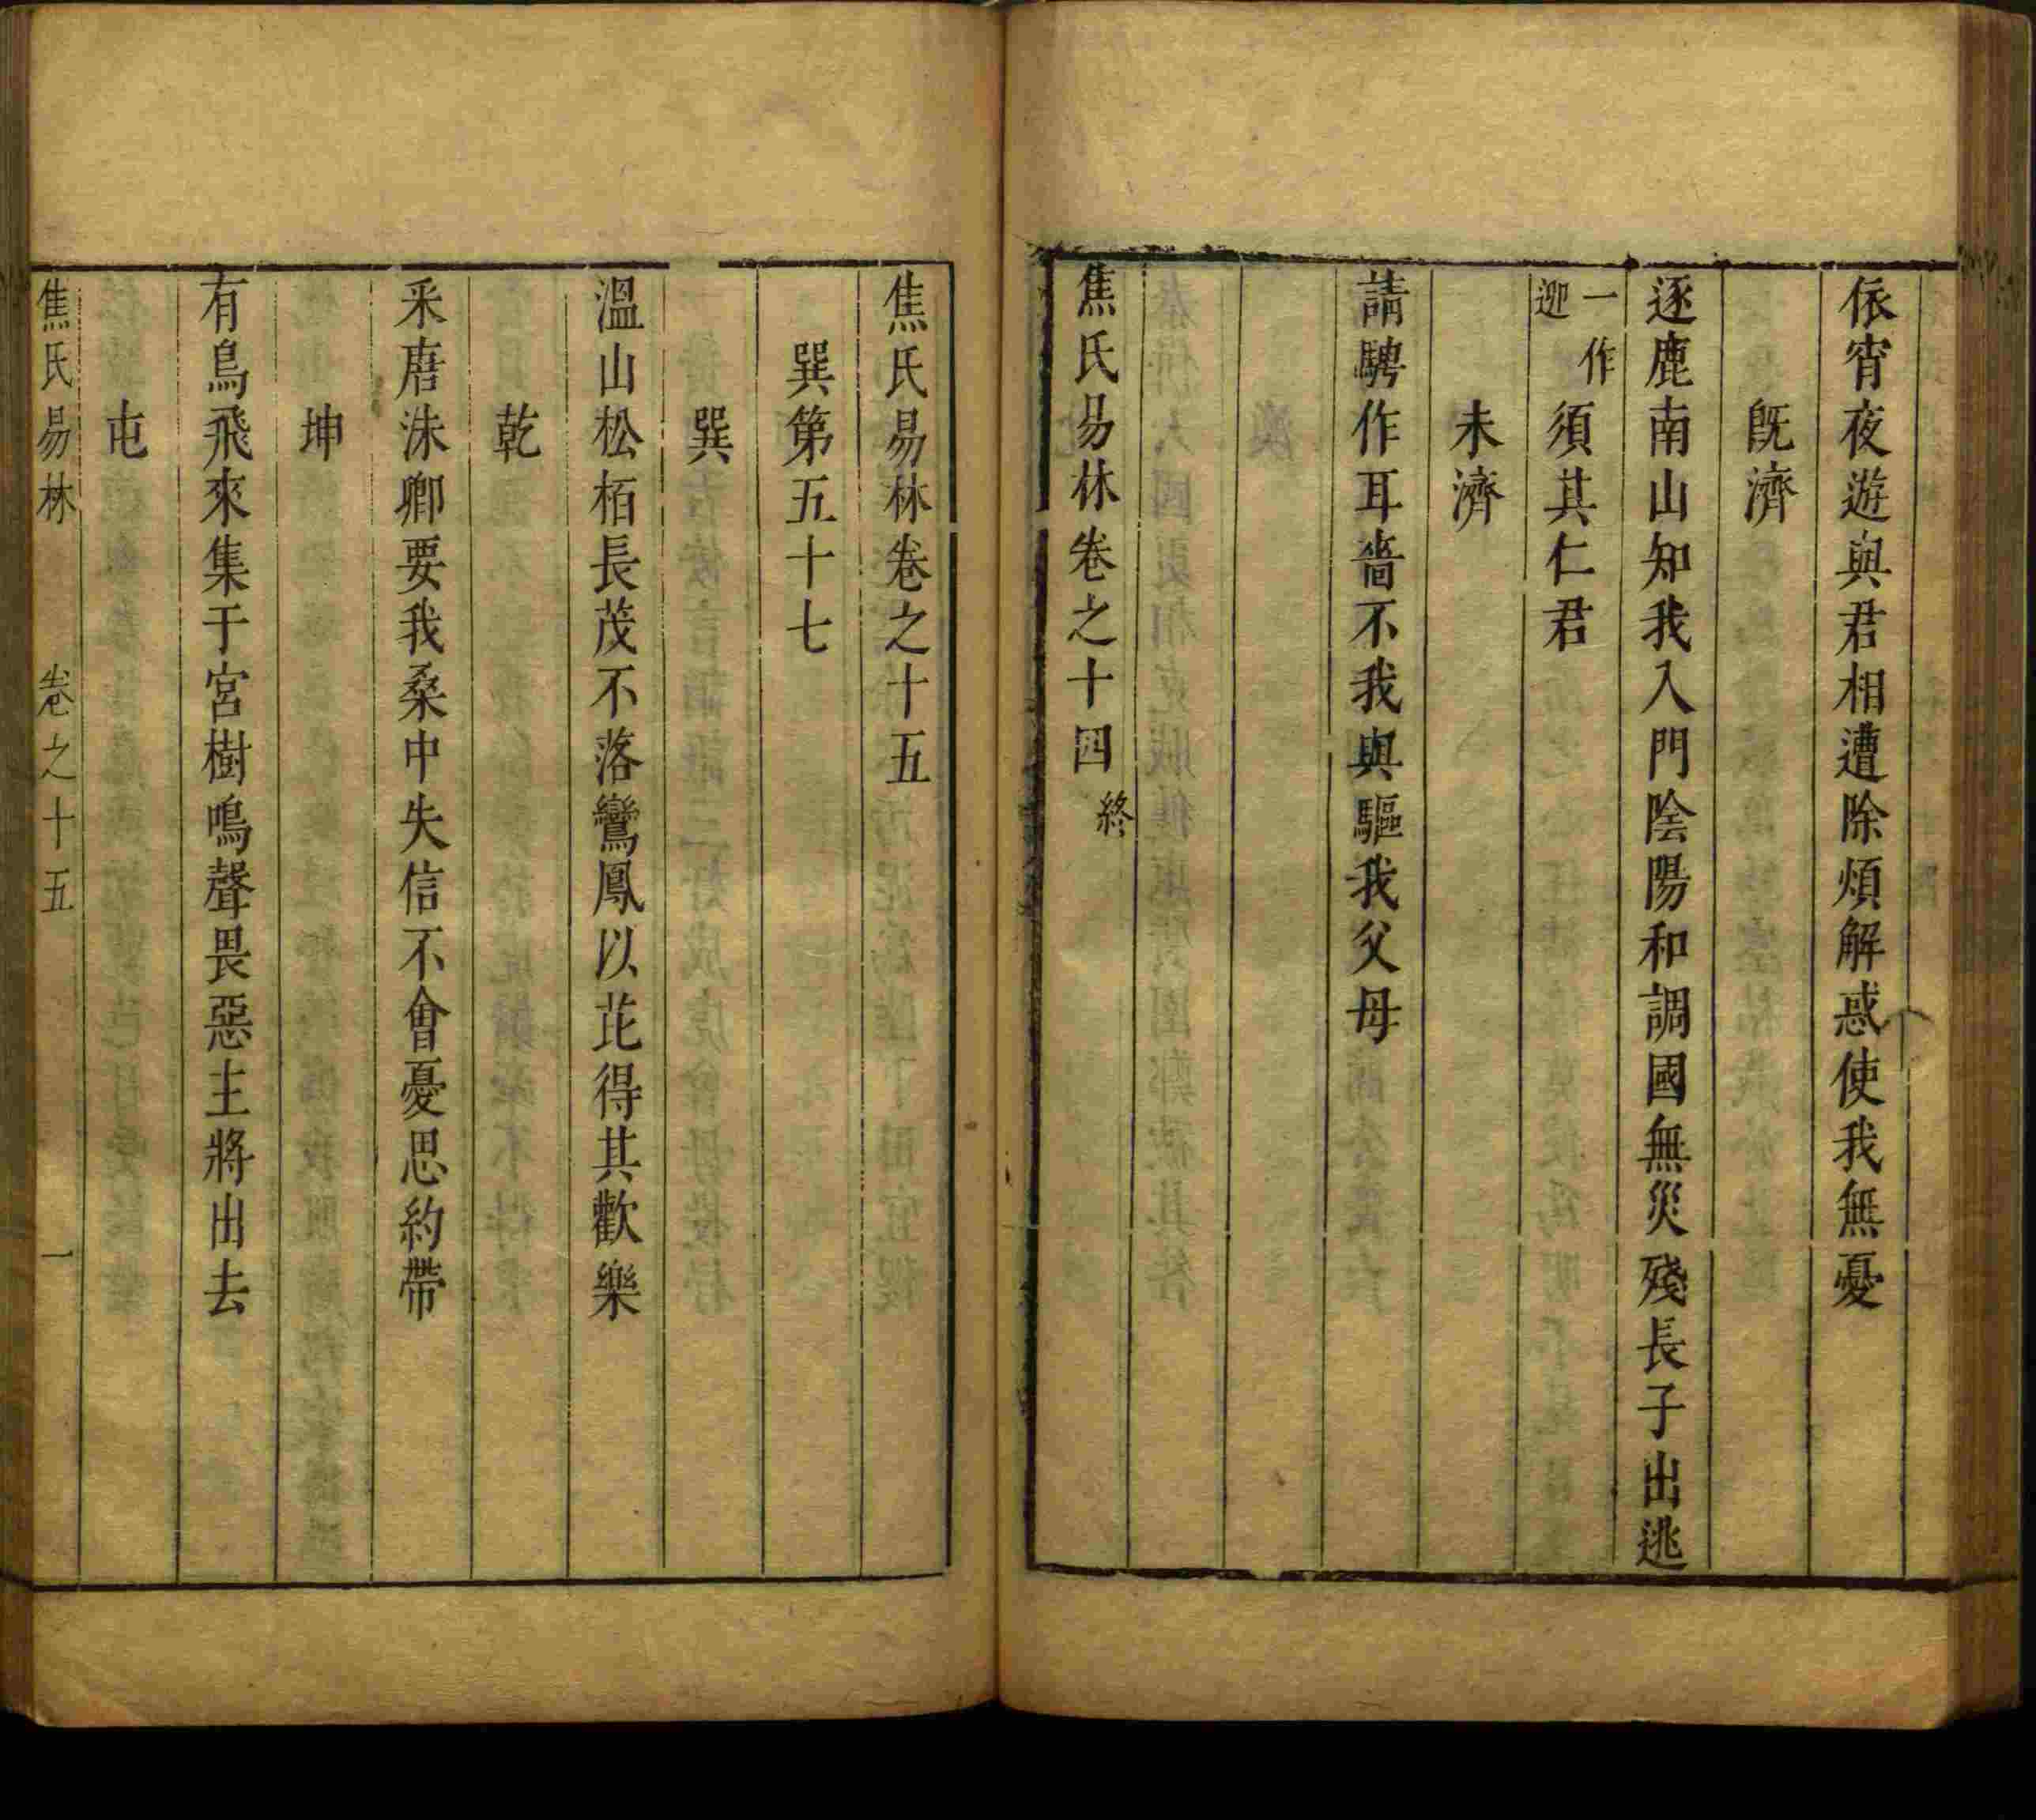 依宵夜遊與君相遭除煩解惑使我無憂
旣濟
逐鹿南山知我入門陰陽和調國無災殘長子出逃
一作迎須其仁君
未濟
請騁作耳嗇不我與驅我父母
焦氏易林卷之十四終
焦氏易林卷之十五
巽第五十七
巽
溫山松栢長茂不落鸞鳳以芘得其歡樂
乾
采唐沬鄉要我桑中失信不會憂思約帶
坤
有鳥飛來集于宮樹鳴聲畏惡主將出去
屯
焦氏易林 卷之十五 一